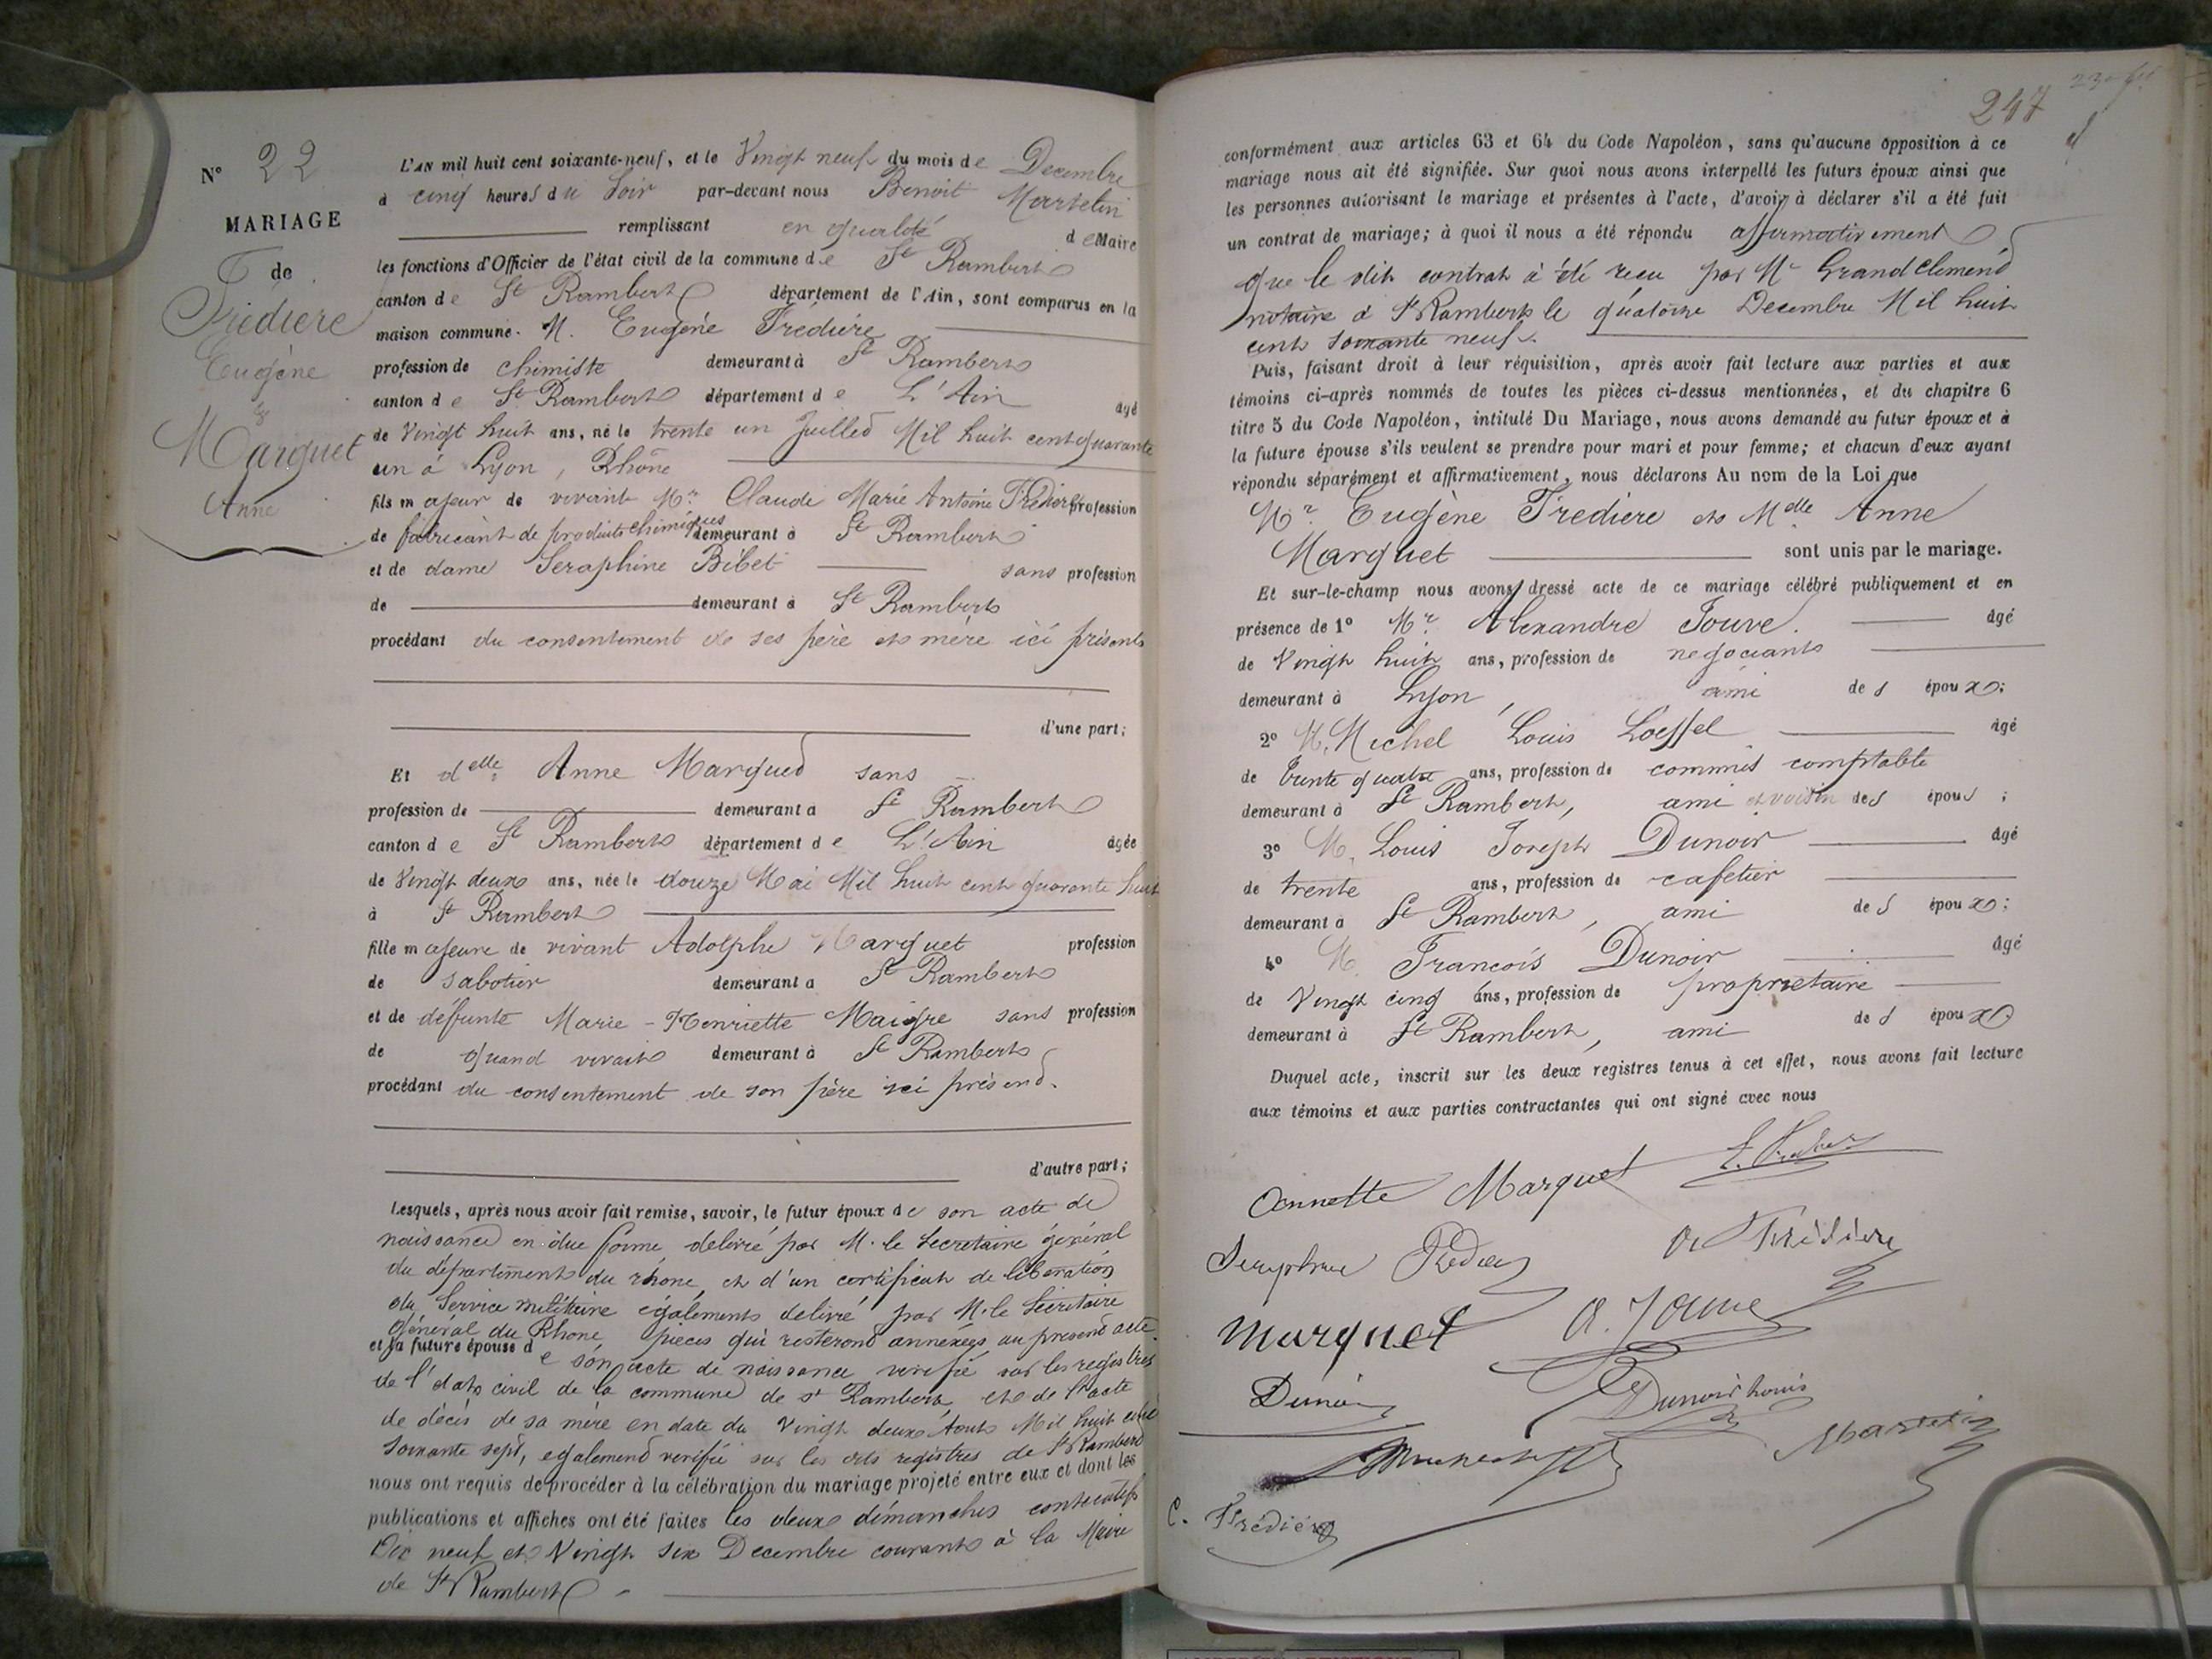 N° 22
MARIAGE
de
Frédière
Eugène
&
Marguet
Anne
L'AN mil huit cent soixante-neuf, et le Vingt neuf du mois de Decembre
à cinq heures du Soir par-devant nous Benoit Martelin
remplissant en qualité de Maire
les fonctions d'Officier de l'état civil de la commune de St Rambert
canton de St Rambert département de l'Ain, sont comparus en la
maison commune. M. Eugène Frédière
profession de chimiste demeurant à St Rambert
canton de St Rambert département de L'Ain âgé
de Vingt huit ans, né le trente un Juillet Mil huit cent quarante
un à Lyon, Rhône
fils majeur de vivant Mr Claude Marie Antoine Frédière profession
de fabricant de produits chimiques demeurant à St Rambert
et de dame Seraphine Bibet sans profession
de demeurant à St Rambert
procédant du consentement de ses père et mère ici présents
d'une part;
Et delle Anne Marguet sans
profession de demeurant à St Rambert
canton de St Rambert département de L'Ain âgée
de Vingt deux ans, née le douze Mai Mil huit cent quarante huit
à St Rambert
fille majeure de vivant Adolphe Marguet profession
de sabotier demeurant à St Rambert
et de défunte Marie-Henriette Maigre sans profession
de quand vivait demeurant à St Rambert
procédant du consentement de son père ici présent.
d'autre part;
Lesquels, après nous avoir fait remise, savoir, le futur époux de son acte de
naissance en due forme delivré par M. le Secretaire général
du département du rhone, et d'un certificat de libération
du Service militaire également delivré par M. le Secretaire
général du Rhone pieces qui resteront annexées au present acte
et la future épouse de son acte de naissance verifié sur les registres
de l'état civil de la commune de st Rambert, et de l'acte
de décès de sa mère en date du Vingt deux Aout Mil huit cent
soixante sept, egalement verifié sur les dits registres de St Rambert
nous ont requis de procéder à la célébration du mariage projeté entre eux et dont les
publications et affiches ont été faites les deux dimanches consecutifs
Dix neuf et Vingt six Decembre courant à la Mairie
de St Rambert
247
conformément aux articles 63 et 64 du Code Napoléon, sans qu'aucune opposition à ce
mariage nous ait été signifiée. Sur quoi nous avons interpellé les futurs époux ainsi que
les personnes autorisant le mariage et présentes à l'acte, d'avoir à déclarer s'il a été fait
un contrat de mariage; à quoi il nous a été répondu affirmativement
que le dit contrat à été recu par Mr Grand Clement
notaire à St Rambert le quatorze Decembre Mil huit
cent soixante neuf.
Puis, faisant droit à leur réquisition, après avoir fait lecture aux parties et aux
témoins ci-après nommés de toutes les pièces ci-dessus mentionnées, et du chapitre 6
titre 5 du Code Napoléon, intitulé Du Mariage, nous avons demandé au futur époux et à
la future épouse s'ils veulent se prendre pour mari et pour femme; et chacun d'eux ayant
répondu séparément et affirmativement, nous déclarons Au nom de la Loi que
Mr Eugène Frediere et Melle Anne
Marguet sont unis par le mariage.
Et sur-le-champ nous avons dressé acte de ce mariage célébré publiquement et en
présence de 1° Mr Alexandre Jouve. âgé
de Vingt huit ans, profession de negociant
demeurant à Lyon, ami des époux;
2° M. Michel Louis Loeffel âgé
de trente quatre ans, profession de commis comptable
demeurant à St Rambert, ami et voisin des épous;
3° M. Louis Joseph Dunoir âgé
de trente ans, profession de cafetier
demeurant à St Rambert, ami des époux;
4° M. François Dunoir âgé
de Vingt cinq ans, profession de propriétaire
demeurant à St Rambert, ami des époux
Duquel acte, inscrit sur les deux registres tenus à cet effet, nous avons fait lecture
aux témoins et aux parties contractantes qui ont signé avec nous
Annette Marguet
Seraphine Frédière
Frédière
Marguet A. Jouve
Dunoir Dunoir Louis
Martelin
C. Frédière